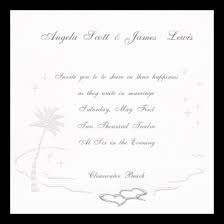 Angela Scott & James Lewis
Invite you to to share in their happiness
as they unite in marriage
Saturday, May First
Two Thousand Twelve
At Six in the Evening
Clearwater Beach